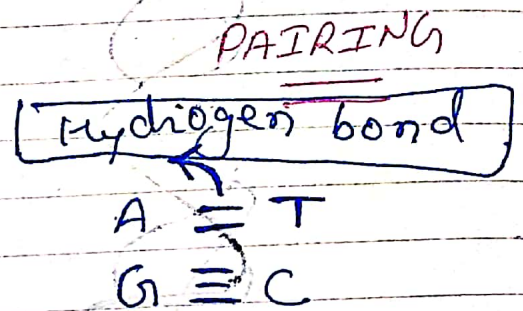 PAIRING
Hydrogen bond
A = T
G ≡ C